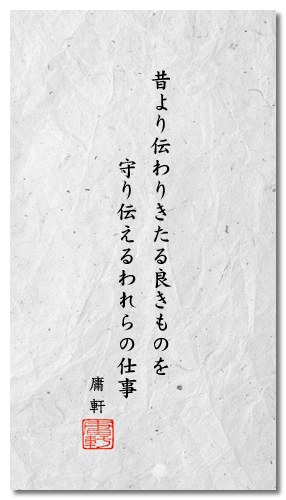 昔より伝わりきたる良きものを
守り伝えるわれらの仕事
庸軒